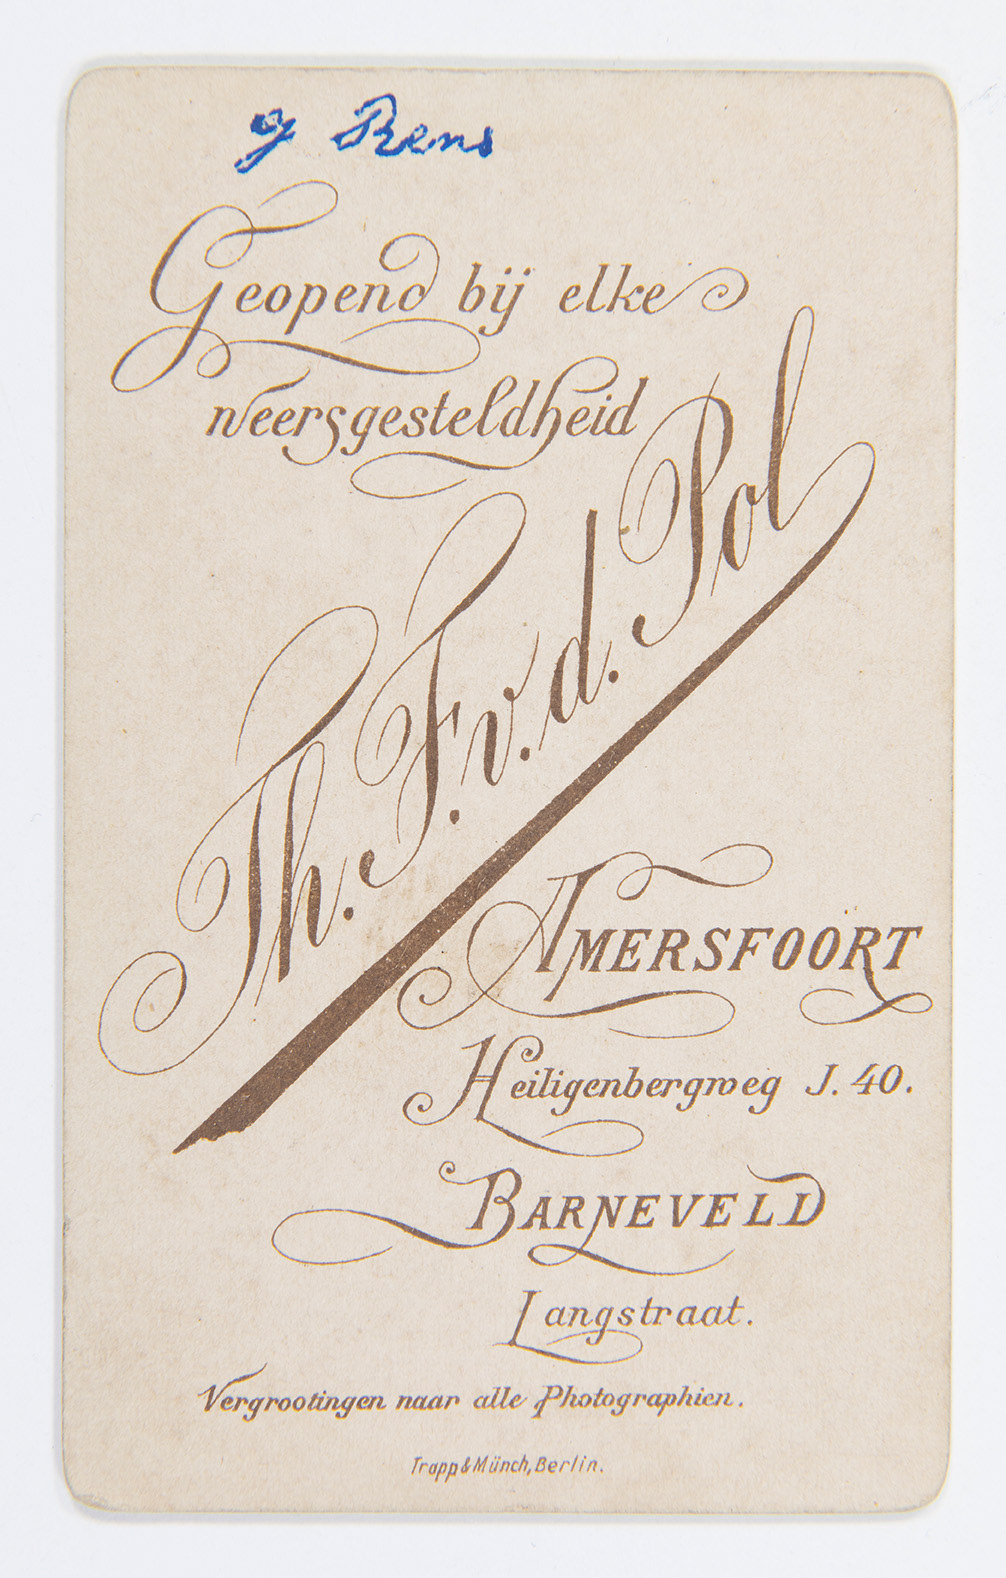 G Rens
Geopend bij elke
weersgesteldheid
Th. F. v. d. Pol
AMERSFOORT
Heiligenbergweg J. 40.
BARNEVELD
Langstraat.
Vergrootingen naar alle Photographien.
Trapp & Münch, Berlin.